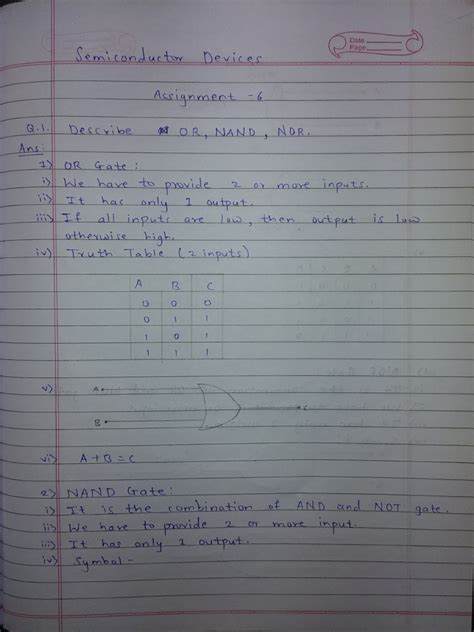 Date
Page
Semiconductor Devices
Assignment - 6
Q.1. Describe OR, NAND, NOR.
Ans:
1) OR Gate:
i) We have to provide 2 or more inputs.
ii) It has only 1 output.
iii) If all inputs are low, then output is low
otherwise high.
iv) Truth Table (2 inputs)
A B C
0 0 0
0 1 1
1 0 1
1 1 1
v) A
C
B
vi) A+B=C
2) NAND Gate:
i) It is the combination of AND and NOT gate.
ii) We have to provide 2 or more input.
iii) It has only 1 output.
iv) Symbol -